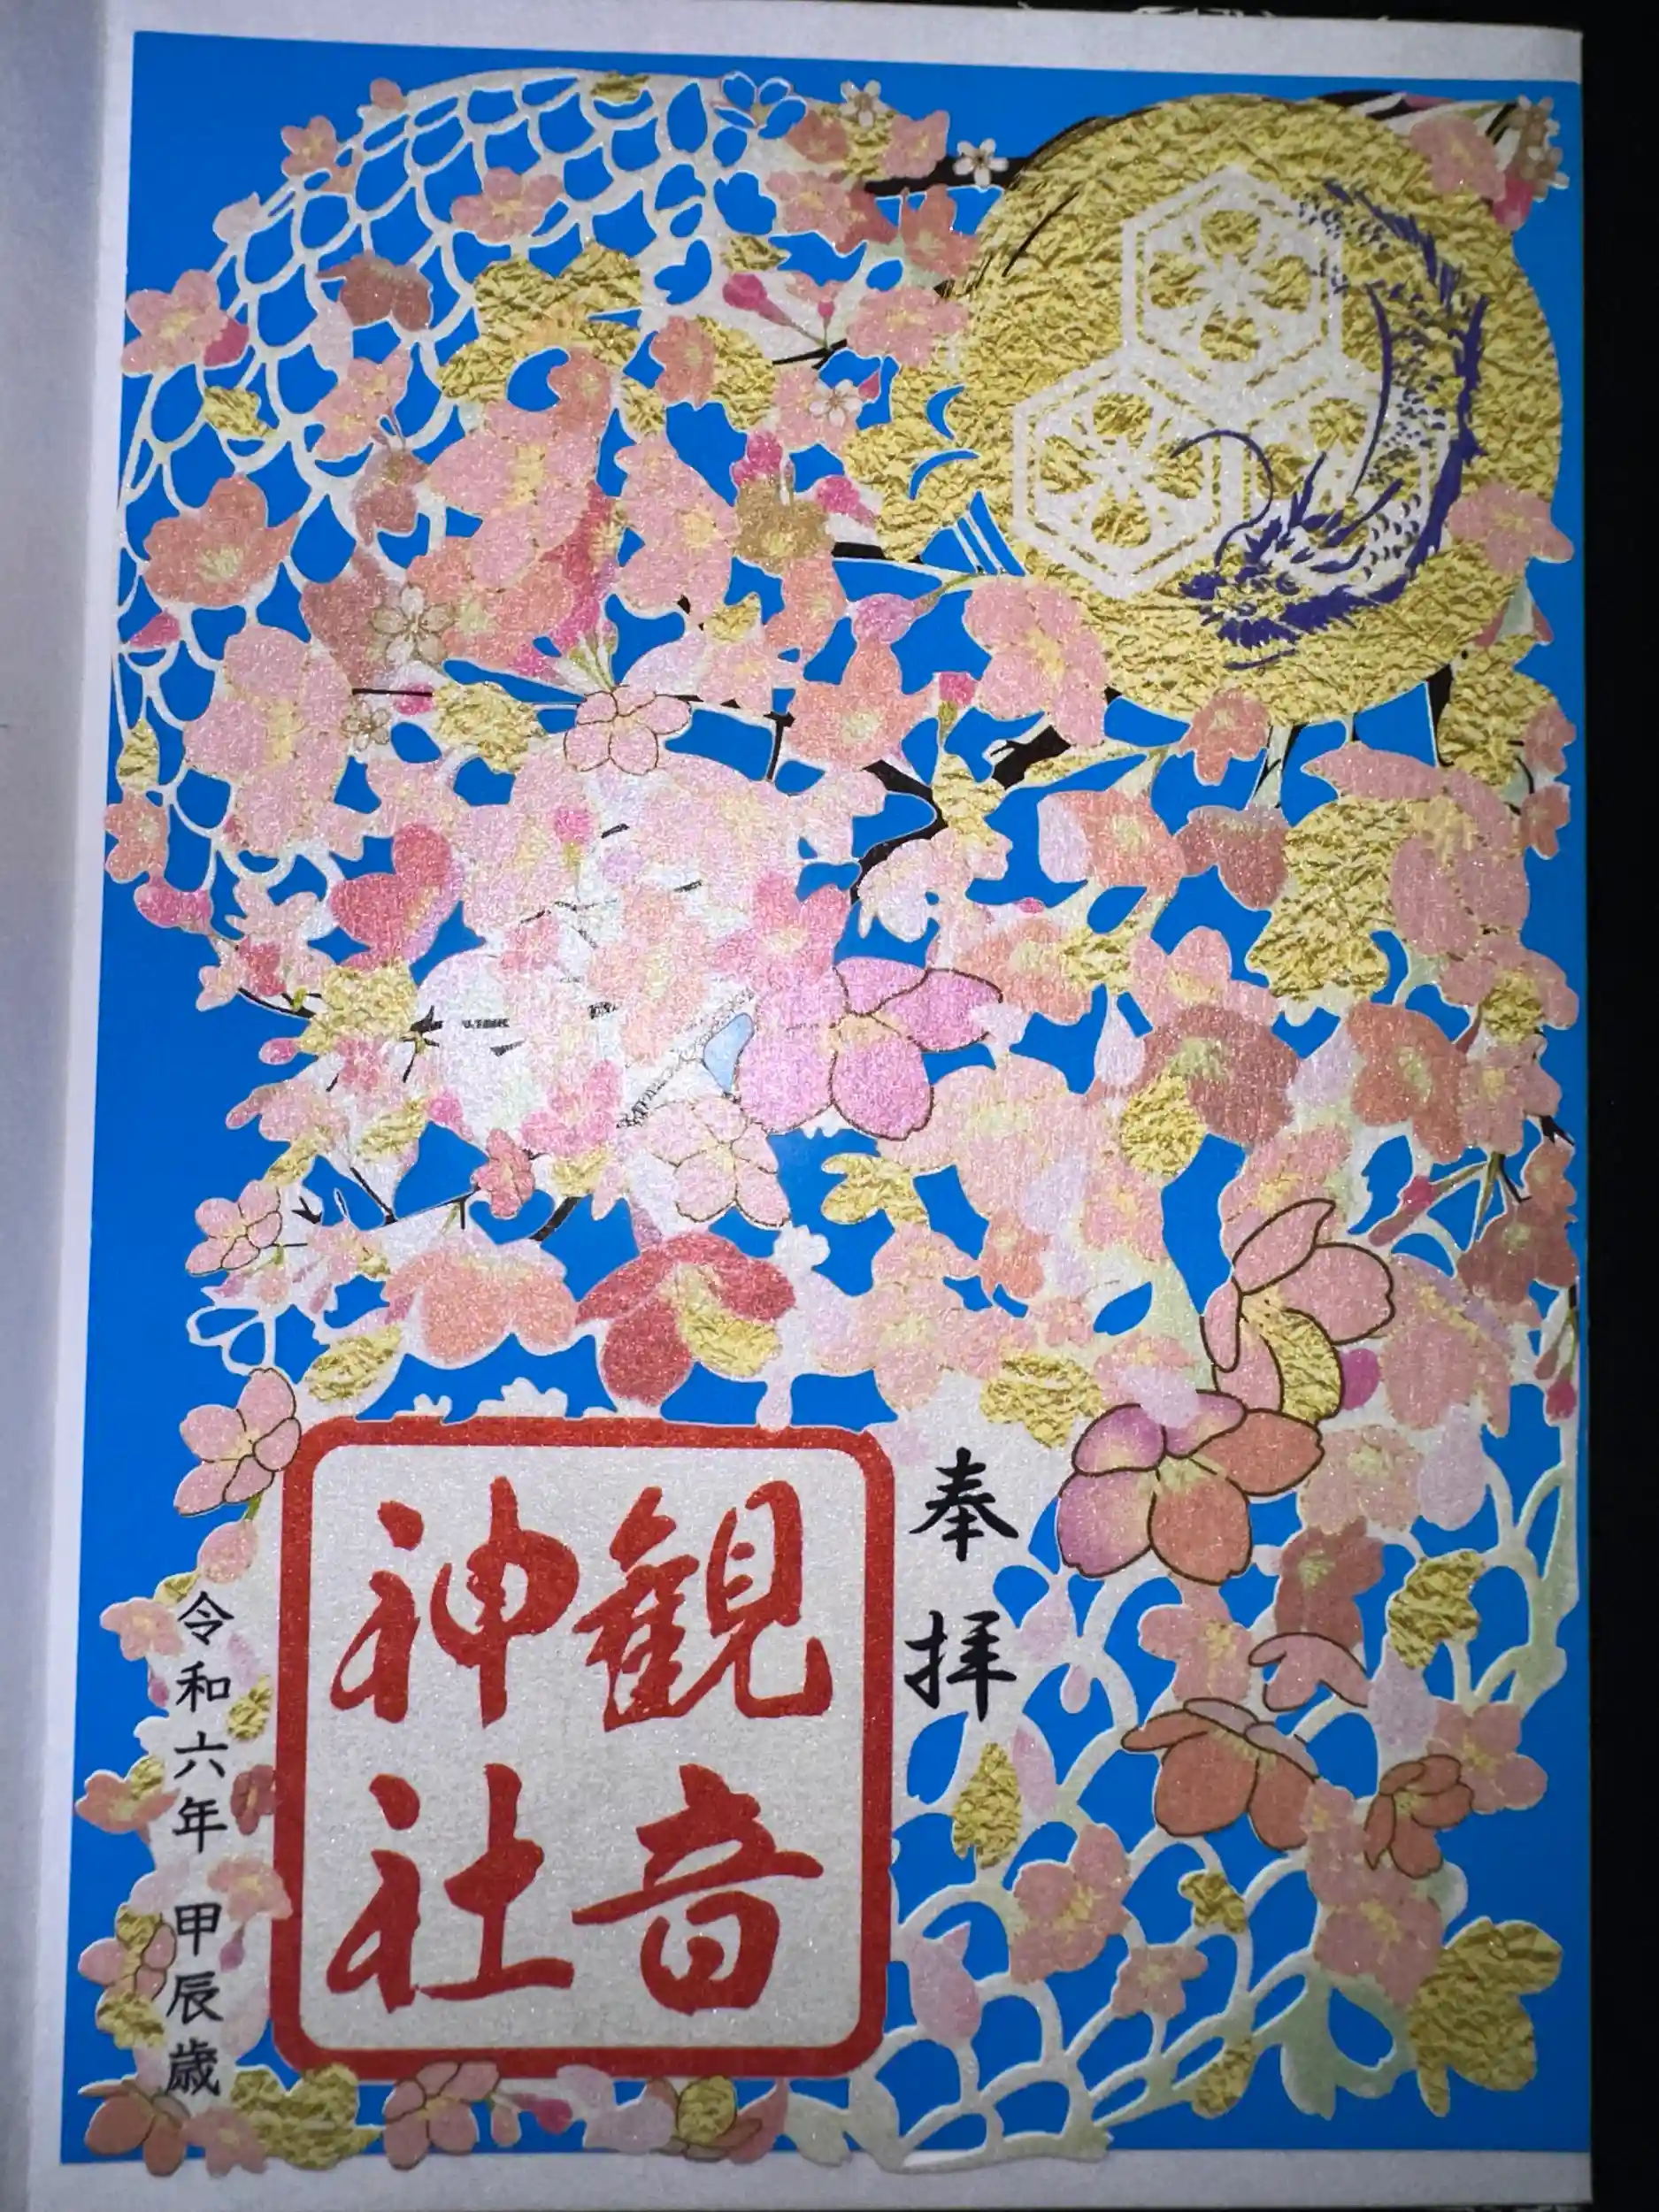 奉拝
観音
神社
令和六年 甲辰歳